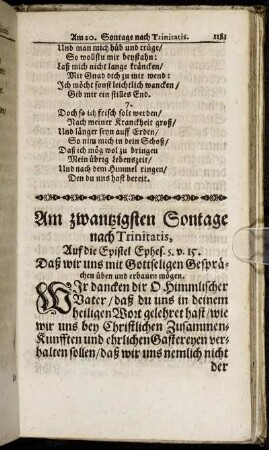 Am 20. Sontage nach Trinitatis. 1181
Und man mich hüb und trüge/
So wollstu mir beystahn:
Laß mich nicht lange kräncken/
Mit Gnad dich zu mir wend:
Ich möcht sonst leichtlich wancken/
Gib mir ein stilles End.
7.
Doch so ich frisch solt werden/
Nach meiner Kranckheit groß/
Und länger seyn auff Erden/
So nim mich in dein Schoß/
Daß ich mög wol zu bringen
Mein übrig Lebenszeit/
Und nach dem Himmel ringen/
Den du uns hast bereit.
Am zwantzigsten Sontage
nach Trinitatis,
Auf die Epistel Ephes. 5. v. 15.
Daß wir uns mit Gottseligen Gesprä-
chen üben und erbauen mögen.
WIr dancken dir O Himmlischer
Vater/ daß du uns in deinem
heiligen Wort gelehret hast/ wie
wir uns bey Christlichen Zusammen-
Kunfften und ehrlichen Gastereyen ver-
halten sollen/ daß wir uns nemlich nicht
der